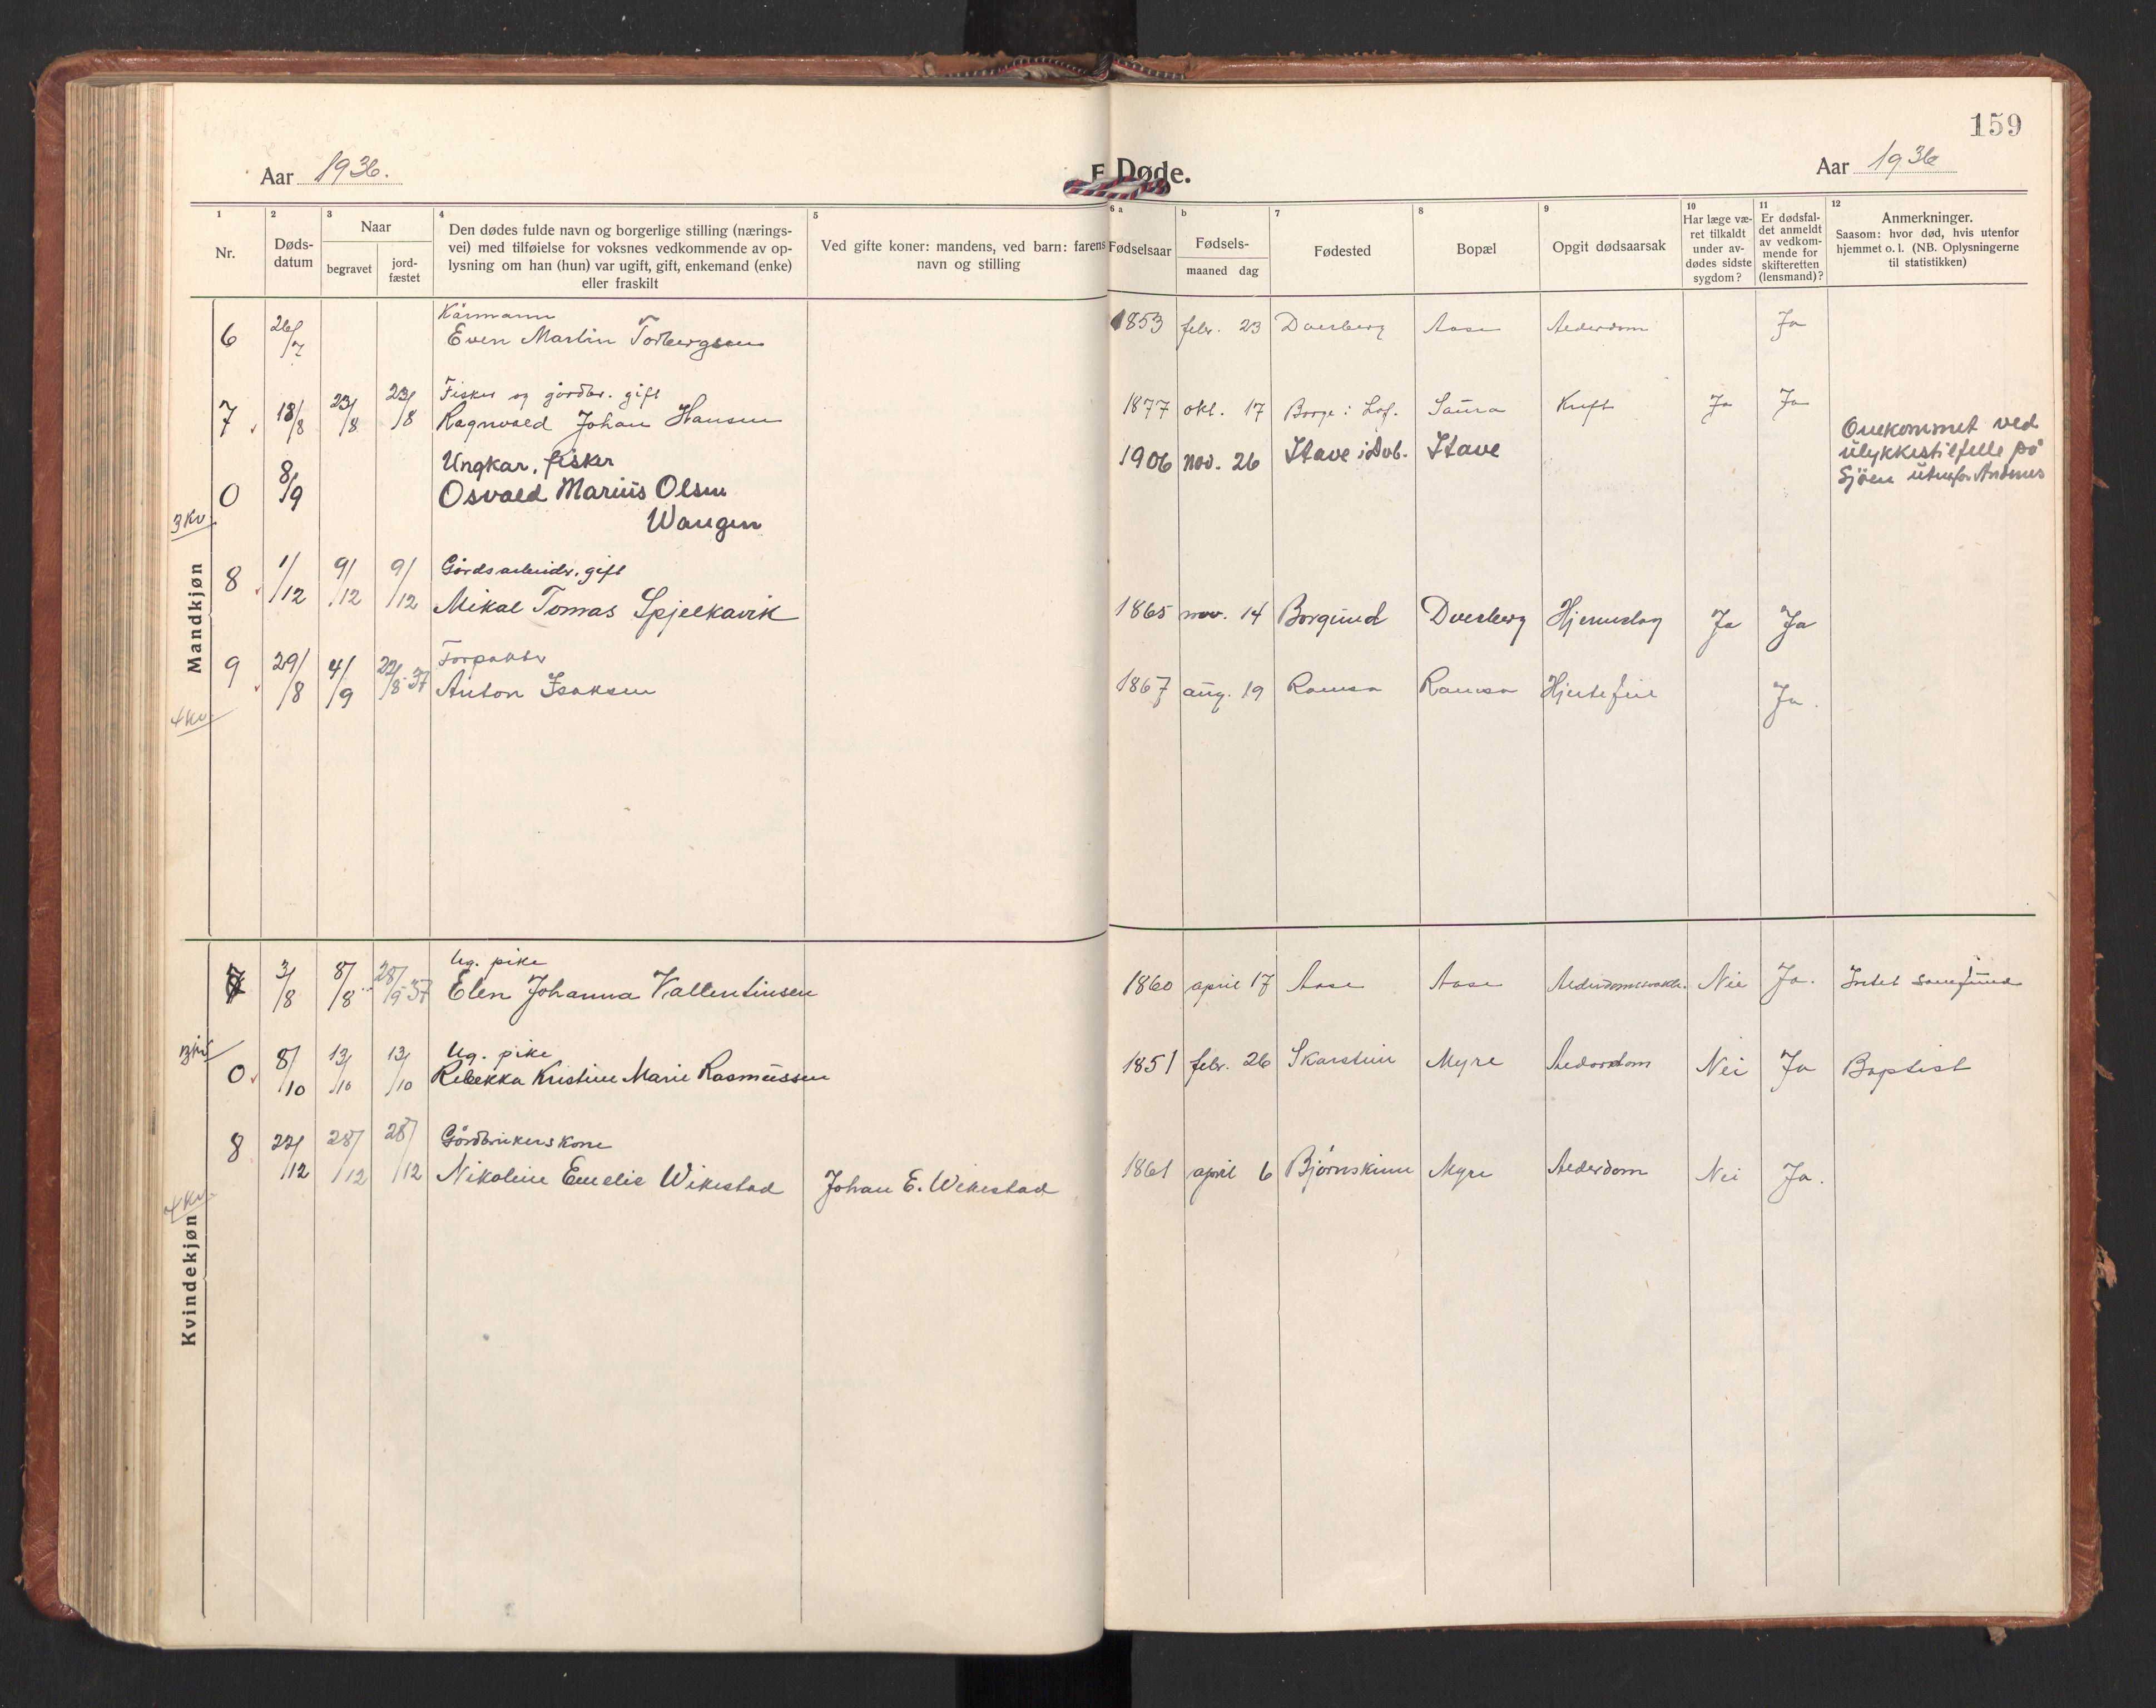 159
Aar 1936.
F. Døde.
Aar 1936
1 2 3 4 5 6 a b 7 8 9 10 11 12
Nr.
Døds-
datum
Naar
begravet
jord-
fæstet
Den dødes fulde navn og borgerlige stilling (nærings-
vei) med tilføielse for voksnes vedkommende av op-
lysning om han (hun) var ugift, gift, enkemand (enke)
eller fraskilt
Ved gifte koner: mandens, ved barn: farens
navn og stilling
Fødselsaar
Fødsels-
maaned dag
Fødested
Bopæl
Opgit dødsaarsak
Har læge væ-
ret tilkaldt
under av-
dødes sidste
sygdom?
Er dødsfal-
det anmeldt
av vedkom-
mende for
skifteretten
(lensmand)?
Anmerkninger.
Saasom: hvor død, hvis utenfor
hjemmet o. l. (NB. Oplysningerne
til statistikken)
Mandkjøn
Kårmann
6 26/7 Even Martin Torbergsen 1853 febr. 23 Dverberg Aase Alderdom Ja
Fisker og gårdbr. gift
7 18/8 23/8 23/8 Ragnvald Johan Hansen 1877 okt. 17 Borge i Lof. Saura Kreft Ja Ja
Ungkar, fisker
0 8/9 Osvald Marius Olsen 1906 nov. 26 Stave i Dvb. Stave
Wangen
Omkommet ved
ulykkestilfelle på
Sjöen utenfor Andenes
3 kv
Gårdsarbeider. gift
8 1/12 9/12 9/12 Mikal Tomas Spjelkavik 1865 nov. 14 Borgund Dverberg Hjerneslag Ja Ja
Forpakter
9 29/8 4/9 22/8-37 Anton Isaksen 1867 aug. 19 Ramsa Ramsa Hjertefeil Ja.
4 kv
Kvindekjøn
Ug. pike
7 3/8 8/8 28/9-37 Elen Johanna Vallentinsen 1860 april 17 Aase Aase Nei Ja. Intet samfund
Ug. pike
0 8/10 13/10 13/10 Rebekka Kristine Marie Rasmussen 1851 febr. 26 Skarstein Myre Alderdom Nei Ja Baptist
Gårdbrukerskone
8 22/12 28/12 28/12 Nikoline Emelie Wikestad Johan E. Wikestad 1861 april 6 Bjørnskinn Myre Alderdom Nei Ja.
4 kv